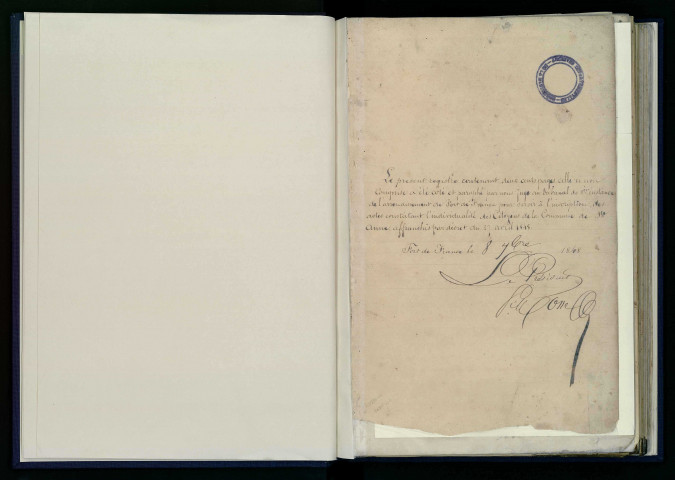 Le présent registre contenant deux cents pages celle-ci non
comprise a été coté et paraphé par nous juge au tribunal de 1re instance
de l'arrondissement de Fort de France pour servir à l'inscription des
actes constatant l'individualité des Citoyens de la Commune de Ste
Anne affranchis par décret du 27 avril 1848
Fort de France le 8 7bre 1848
Le Président